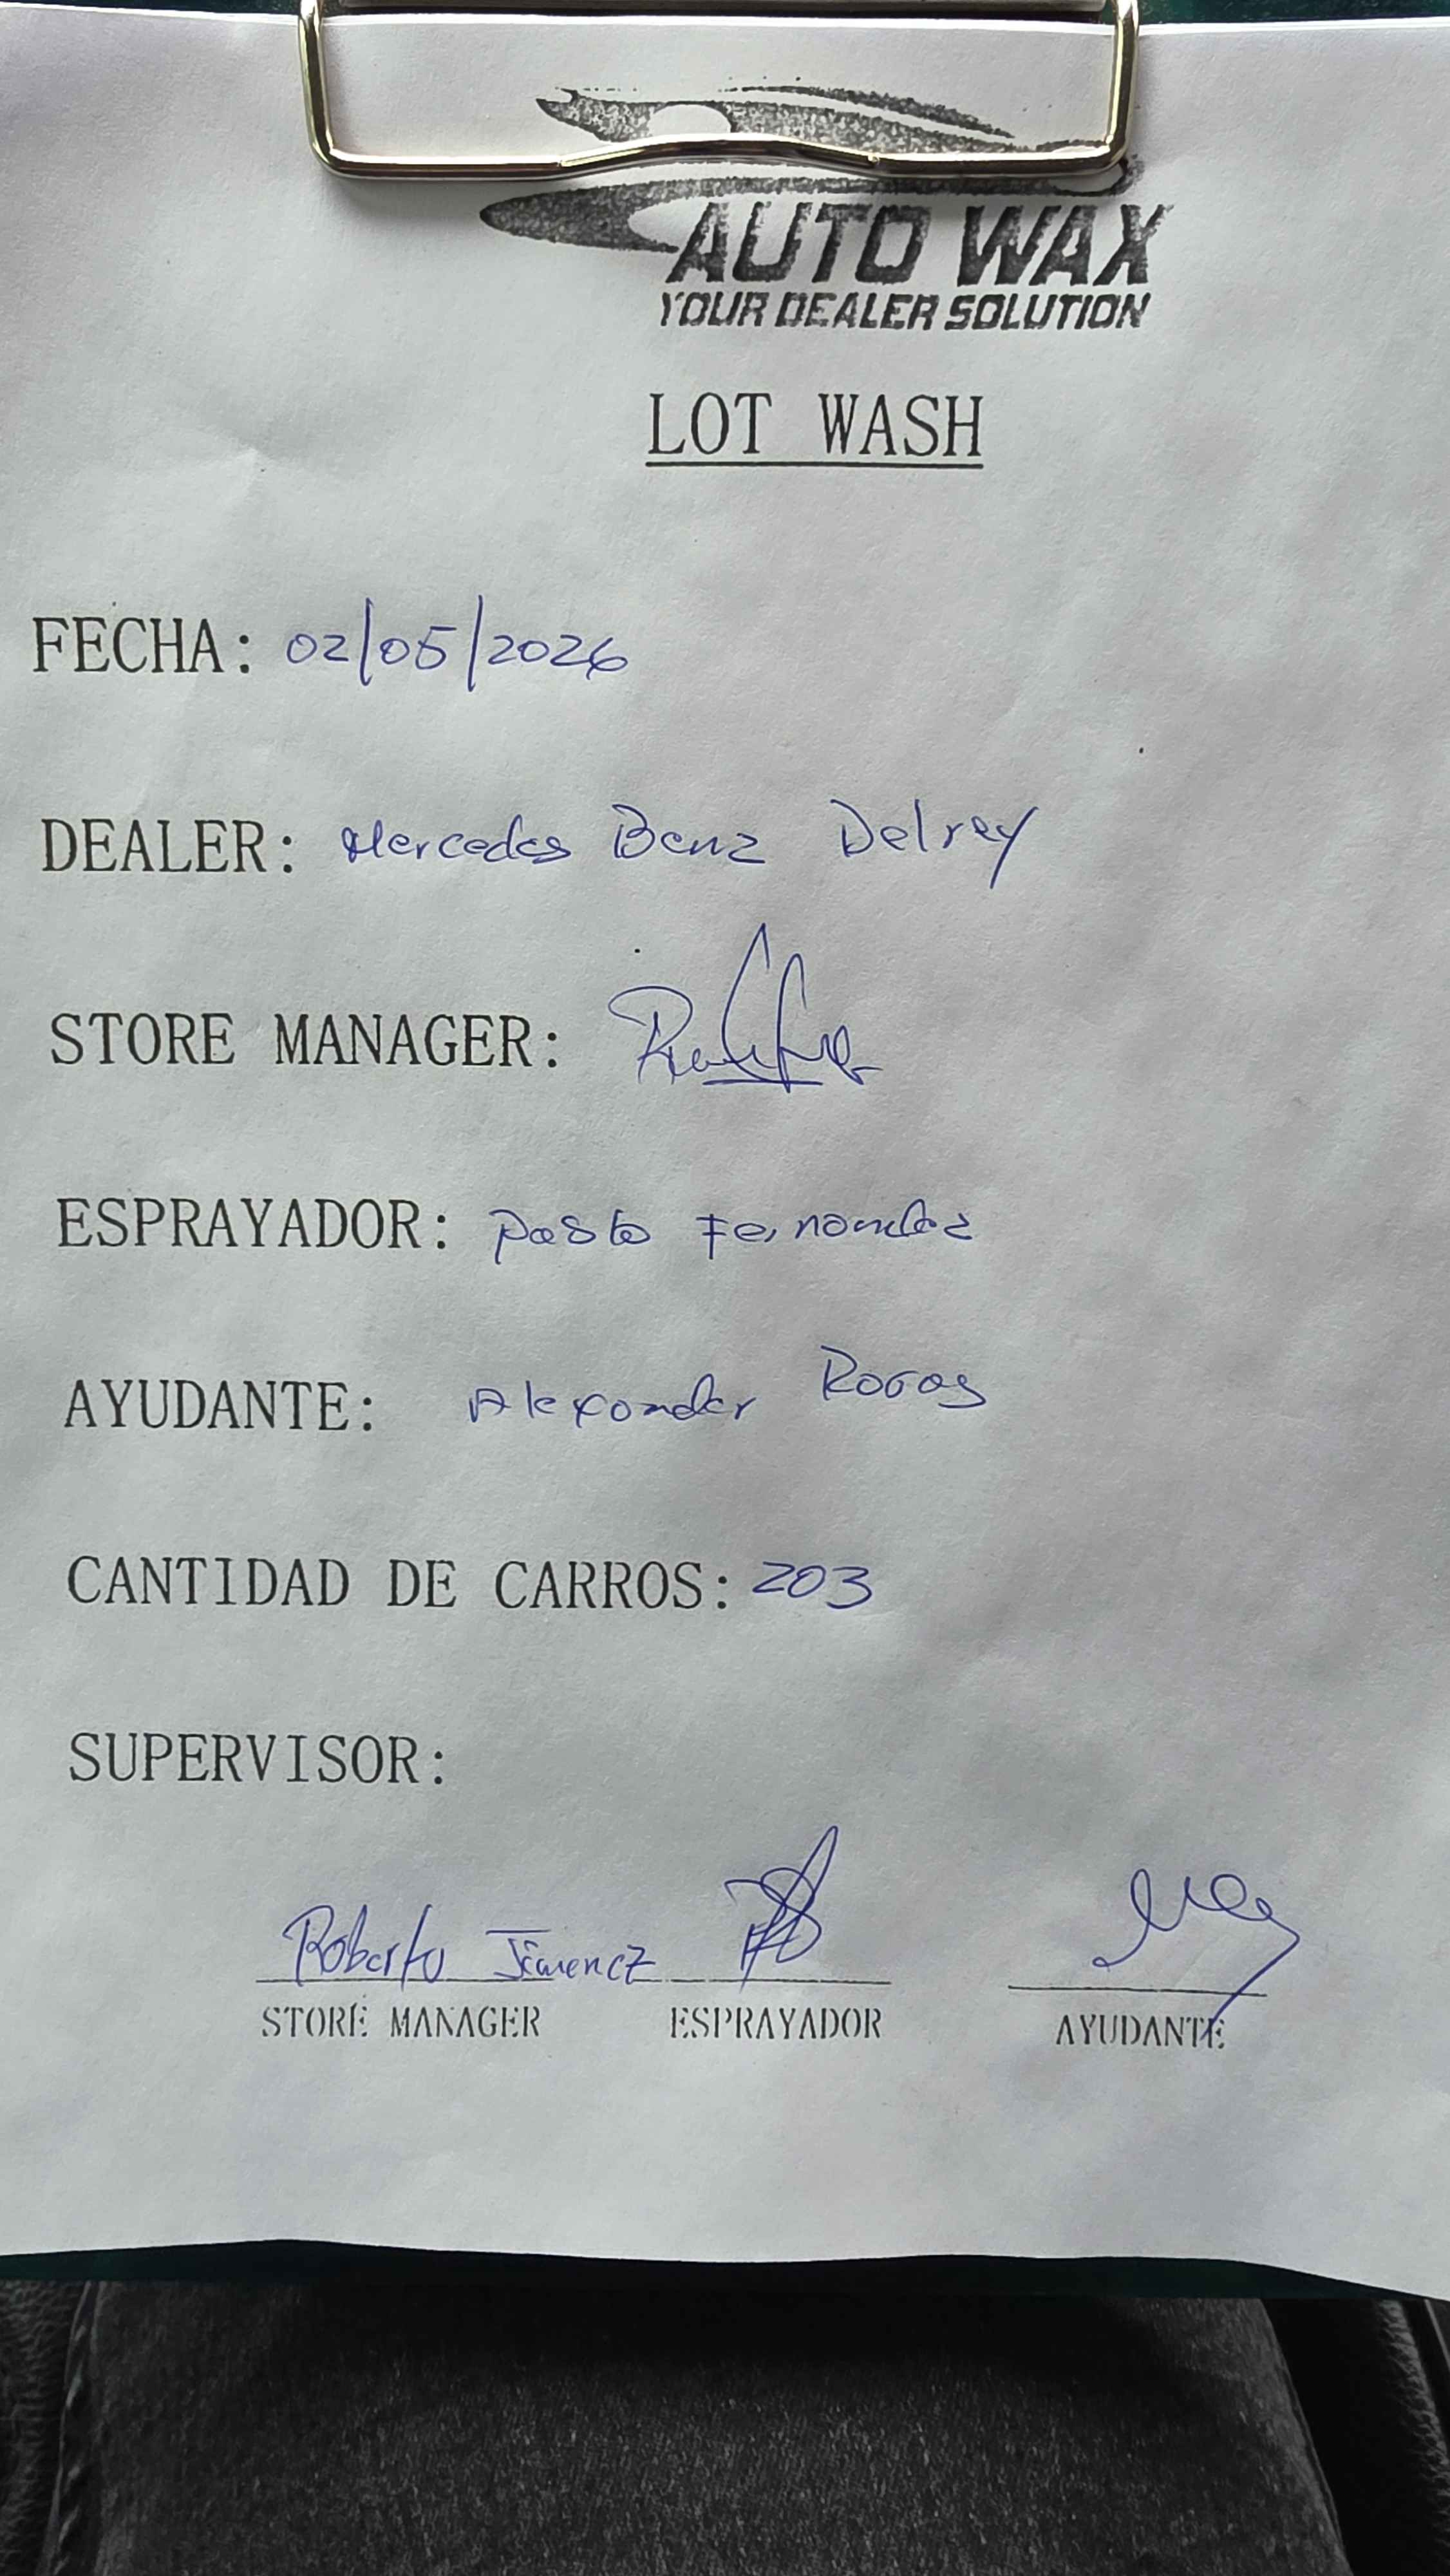 AUTO WAX
YOUR DEALER SOLUTION
LOT WASH
FECHA: 02/05/2026
DEALER: Mercedes Benz Delrey
STORE MANAGER:
ESPRAYADOR: Fernandez
AYUDANTE: Alexander
CANTIDAD DE CARROS: 203
SUPERVISOR:
Roberto Jimenez
STORE MANAGER ESPRAYADOR AYUDANTE